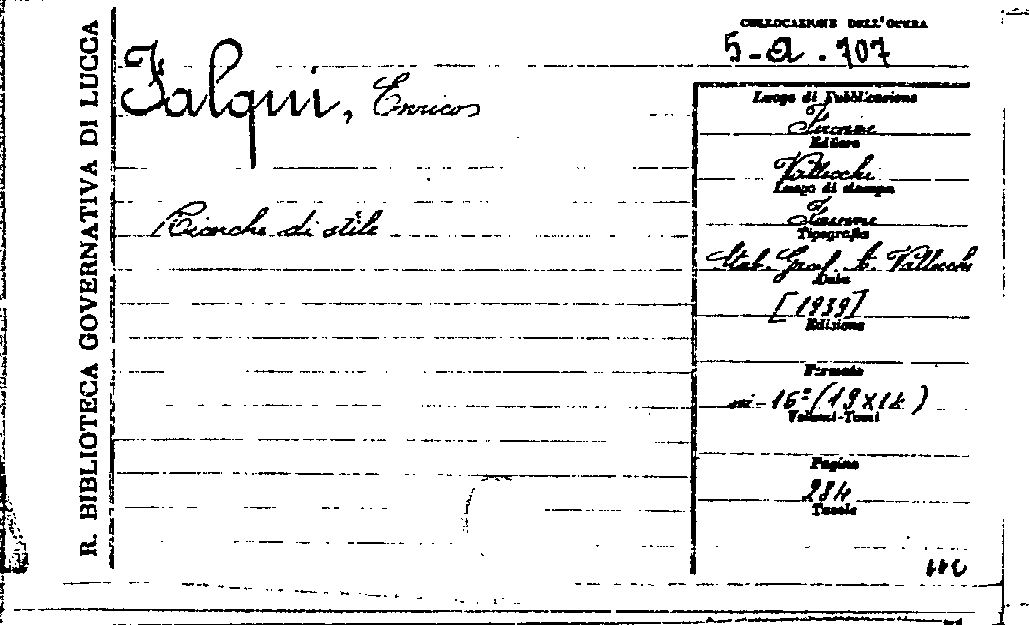 R. BIBLIOTECA GOVERNATIVA DI LUCCA
COLLOCAZIONE DELL'OPERA
5-a.707
Falqui, Enrico
Ricerche di stile
Luogo di Pubblicazione
Firenze
Editore
Vallecchi
Luogo di stampa
Firenze
Tipografia
Stab. Graf. A. Vallecchi
Data
[1939]
Edizione
Formato
in-16º (19x14)
Volumi-Tomi
Pagine
284
Tavole